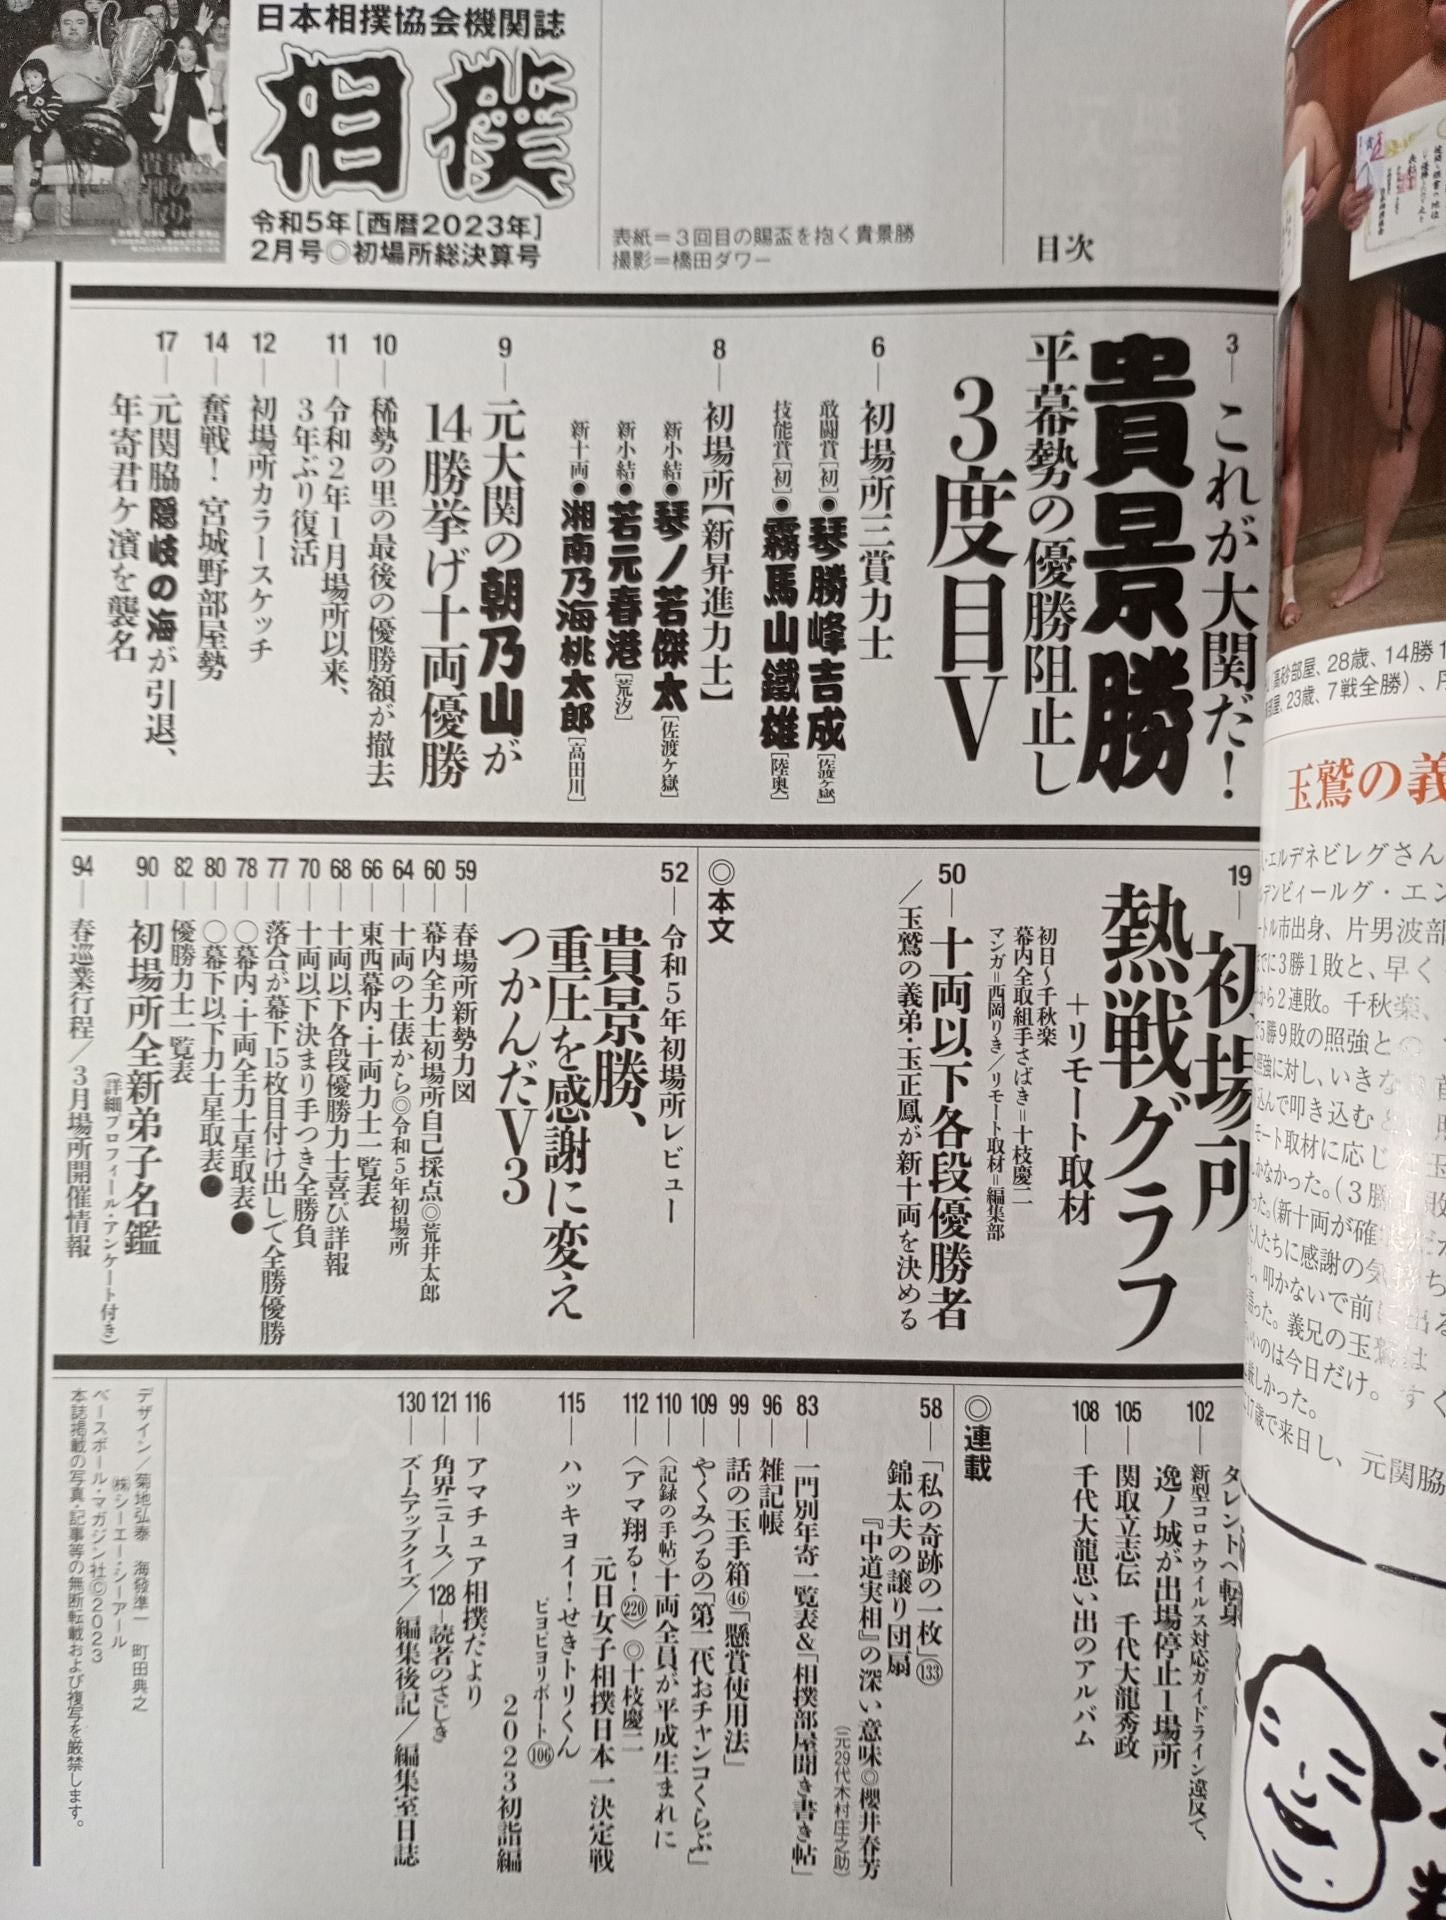 日本相撲協会機関誌
相撲
令和5年[西暦2023年]
2月号◎初場所総決算号
表紙=3回目の賜盃を抱く貴景勝
撮影=橋田ダワー
目次
3 これが大関だ!
貴景勝
平幕勢の優勝阻止し
3度目V
6 初場所三賞力士
敢闘賞[初]●琴勝峰吉成[佐渡ケ嶽]
技能賞[初]●霧馬山鐵雄[陸奥]
8 初場所【新昇進力士】
新小結●琴ノ若傑太[佐渡ケ嶽]
新小結●若元春港[荒汐]
新十両●湘南乃海桃太郎[高田川]
9 元大関の朝乃山が
14勝挙げ十両優勝
10 稀勢の里の最後の優勝額が撤去
11 令和2年1月場所以来、
3年ぶり復活
12 初場所カラースケッチ
14 奮戦! 宮城野部屋勢
17 元関脇隠岐の海が引退、
年寄君ケ濱を襲名
19 初場所
熱戦グラフ
+リモート取材
初日〜千秋楽
幕内全取組手さばき=十枝慶二
マンガ=西岡りき/リモート取材=編集部
50 十両以下各段優勝者
/玉鷲の義弟・玉正鳳が新十両を決める
◎本文
52 令和5年初場所レビュー
貴景勝、
重圧を感謝に変え
つかんだV3
59 春場所新勢力図
60 幕内全力士初場所自己採点◎荒井太郎
64 十両の土俵から◎令和5年初場所
66 東西幕内・十両力士一覧表
68 十両以下各段優勝力士喜び詳報
70 十両以下決まり手つき全勝負
77 落合が幕下15枚目付け出しで全勝優勝
78 ○幕内・十両全力士星取表●
80 ○幕下以下力士星取表●
82 優勝力士一覧表
90 初場所全新弟子名鑑
(詳細プロフィール・アンケート付き)
94 春巡業行程/3月場所開催情報
タレントへ転身
102 新型コロナウイルス対応ガイドライン違反で、
逸ノ城が出場停止1場所
105 関取立志伝 千代大龍秀政
108 千代大龍思い出のアルバム
◎連載
58 「私の奇跡の一枚」133
錦太夫の譲り団扇
『中道実相』の深い意味◎櫻井春芳
(元29代木村庄之助)
83 一門別年寄一覧表&「相撲部屋聞き書き帖」
96 雑記帳
99 話の玉手箱46「懸賞使用法」
109 やくみつるの「第二代おチャンコくらぶ」
110 〈記録の手帖〉十両全員が平成生まれに
112 〈アマ翔る!220〉◎十枝慶二
元日女子相撲日本一決定戦
115 ハッキヨイ!せきトリくん
ピヨピヨリポート106
2023初詣編
116 アマチュア相撲だより
121 角界ニュース/128 読者のさじき
130 ズームアップクイズ/編集後記/編集室日誌
デザイン/菊地弘泰 海發準一 町田典之
㈱シーエーシーアール
ベースボール・マガジン社©2023
本誌掲載の写真・記事等の無断転載および複写を厳禁します。
高砂部屋、28歳、14勝1
部屋、23歳、7戦全勝)、
玉鷲の義
エルデネビレグさん
デンビィールグ・エン
トル市出身、片男波部
でに3勝1敗と、早く
から2連敗。千秋楽、
5勝9敗の照強と
照強に対し、いきな
込んで叩き込むと
モート取材に応じ
かなかった。(3勝
った。(新十両が確
人たちに感謝の気
叩かないで前に出る
語った。義兄の玉鷲は
いのは今日だけ。すぐ
厳しかった。
17歳で来日し、元関脇